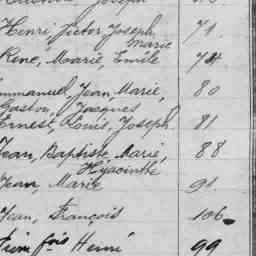 Henri Victor Joseph 71.
Marie
Rene, Marie, Emile 74
Emmanuel, Jean, Marie, 80
Gaston, Jacques
Ernest, Louis, Joseph 81
Jean, Baptiste, Marie, 88
Hyacinthe
Jean, Marie 91.
Jean, François 106
fois Henri 99